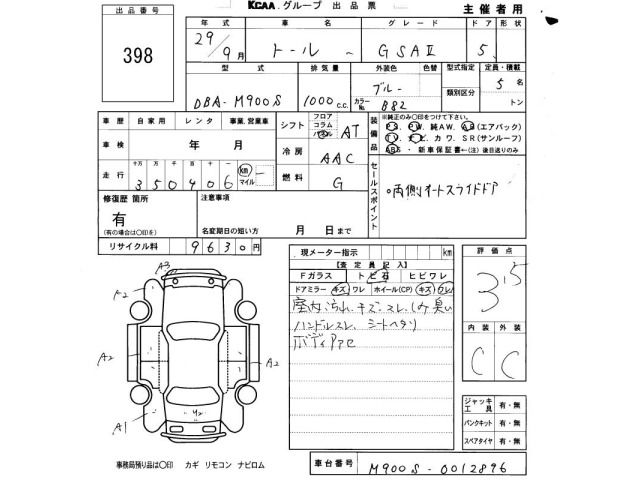 出品番号
KCAA グループ 出品票
主催者用
398
年式 車名 グレード ドア 形状
29/9月 トール ~ GSAⅡ 5
型式 排気量 外装色 色替 型式指定 定員・積載
DBA-M900S 1000 c.c. ブルー
カラーNo. B82
類別区分
5 名
トン
車歴 自家用 レンタ 事業、営業車
シフト フロア コラム パネル AT
車検 年 月
冷房 AAC
走行 十万 万 千 百 十 一
350406 km マイル
燃料 G
装備品
※純正のみ〇印をつけて下さい。
PS. PW. 純AW. AB(エアバック)
TV. ナビ. カワ. SR(サンルーフ)
ABS・新車保証書←(注)後日送りのみ
セールスポイント
。両側オートスライドドア
修復歴 箇所
有
(有の場合は〇印を)
注意事項
名変期日の短い方 月 日まで
リサイクル料 9630円
現メーター指示 km
【査定員記入】
Fガラス トビ石 ヒビワレ
ドアミラー キズ ワレ ホイール(CP) キズ ワレ
室内汚れ、キズ、スレ、しみ臭い
ハンドルスレ シートヘタリ
ボディ
評価点
3.5
内装 外装
C C
A3
A2
A2
A2
A1
ジャッキ工具 有・無
パンクキット 有・無
スペアタイヤ 有・無
事務局預り品は〇印 カギ リモコン ナビロム
車台番号 M900S-0012896